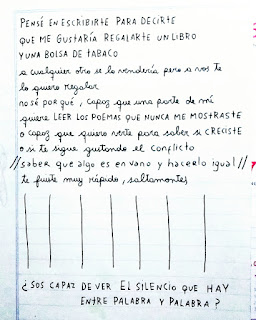 PENSÉ EN ESCRIBIRTE PARA DECIRTE
QUE ME GUSTARÍA REGALARTE UN LIBRO
Y UNA BOLSA DE TABACO
a cualquier otro se lo vendería pero a vos te
lo quiero regalar
no sé por qué, capaz que una parte de mí
quiere LEER LOS POEMAS QUE NUNCA ME MOSTRASTE
o capaz que quiero verte para saber si CRECISTE
o si te sigue gustando el conflicto
//saber que algo es en vano y hacerlo igual//
te fuiste muy rápido, saltamontes
¿SOS CAPAZ DE VER EL SILENCIO QUE HAY
ENTRE PALABRA Y PALABRA?